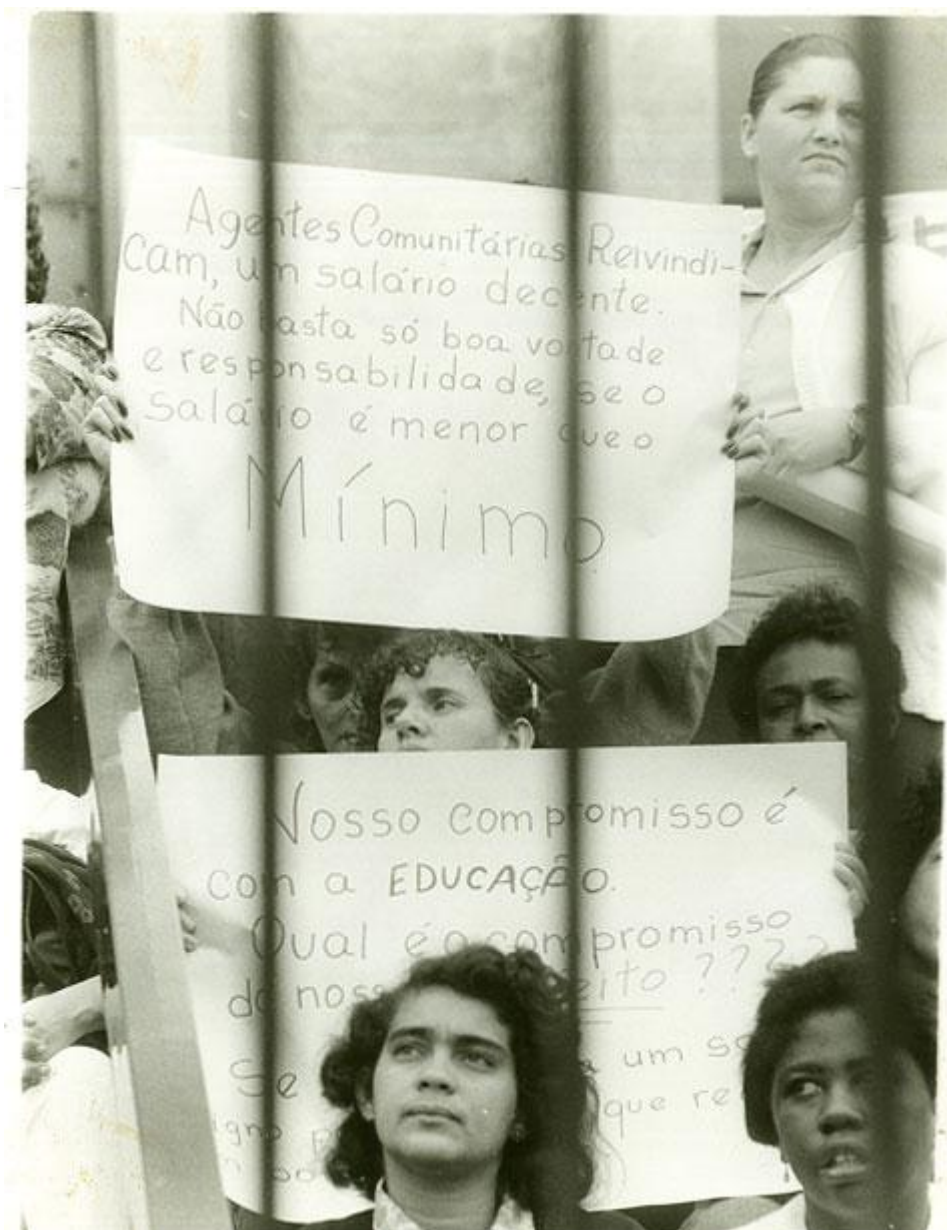 Agentes Comunitárias Reivindi-
cam, um salário decente.
Não basta só boa vontade
e responsabilidade, se o
salário é menor que o
Mínimo.
Nosso compromisso é
com a EDUCAÇÃO.
Qual é o compromisso
do nosso ????
Se um
que